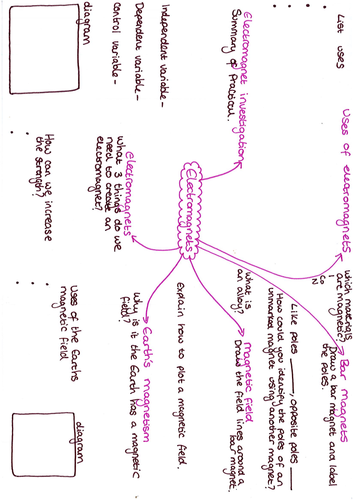 List uses
Uses of electromagnets
Bar magnets
Draw a bar magnet and label
the poles.
which materials
are magnetic?
Like poles ____, opposite poles ____
How could you identify the poles of a
unmarked magnet using another magnet?
what is
an alloy?
Electromagnet investigation
Summary of Practical.
Magnetic field
Draw the field lines around a
bar magnet.
Electromagnets
Explain how to plot a magnetic field.
Independent variable -
Dependent variable -
control variable -
Electromagnets
What 3 things do we
need to create an
electromagnet?
Earth's magnetism
Why is it the Earth has a magnetic
field?
diagram
How can we increase
the strength?
Uses of the Earths
magnetic field
diagram